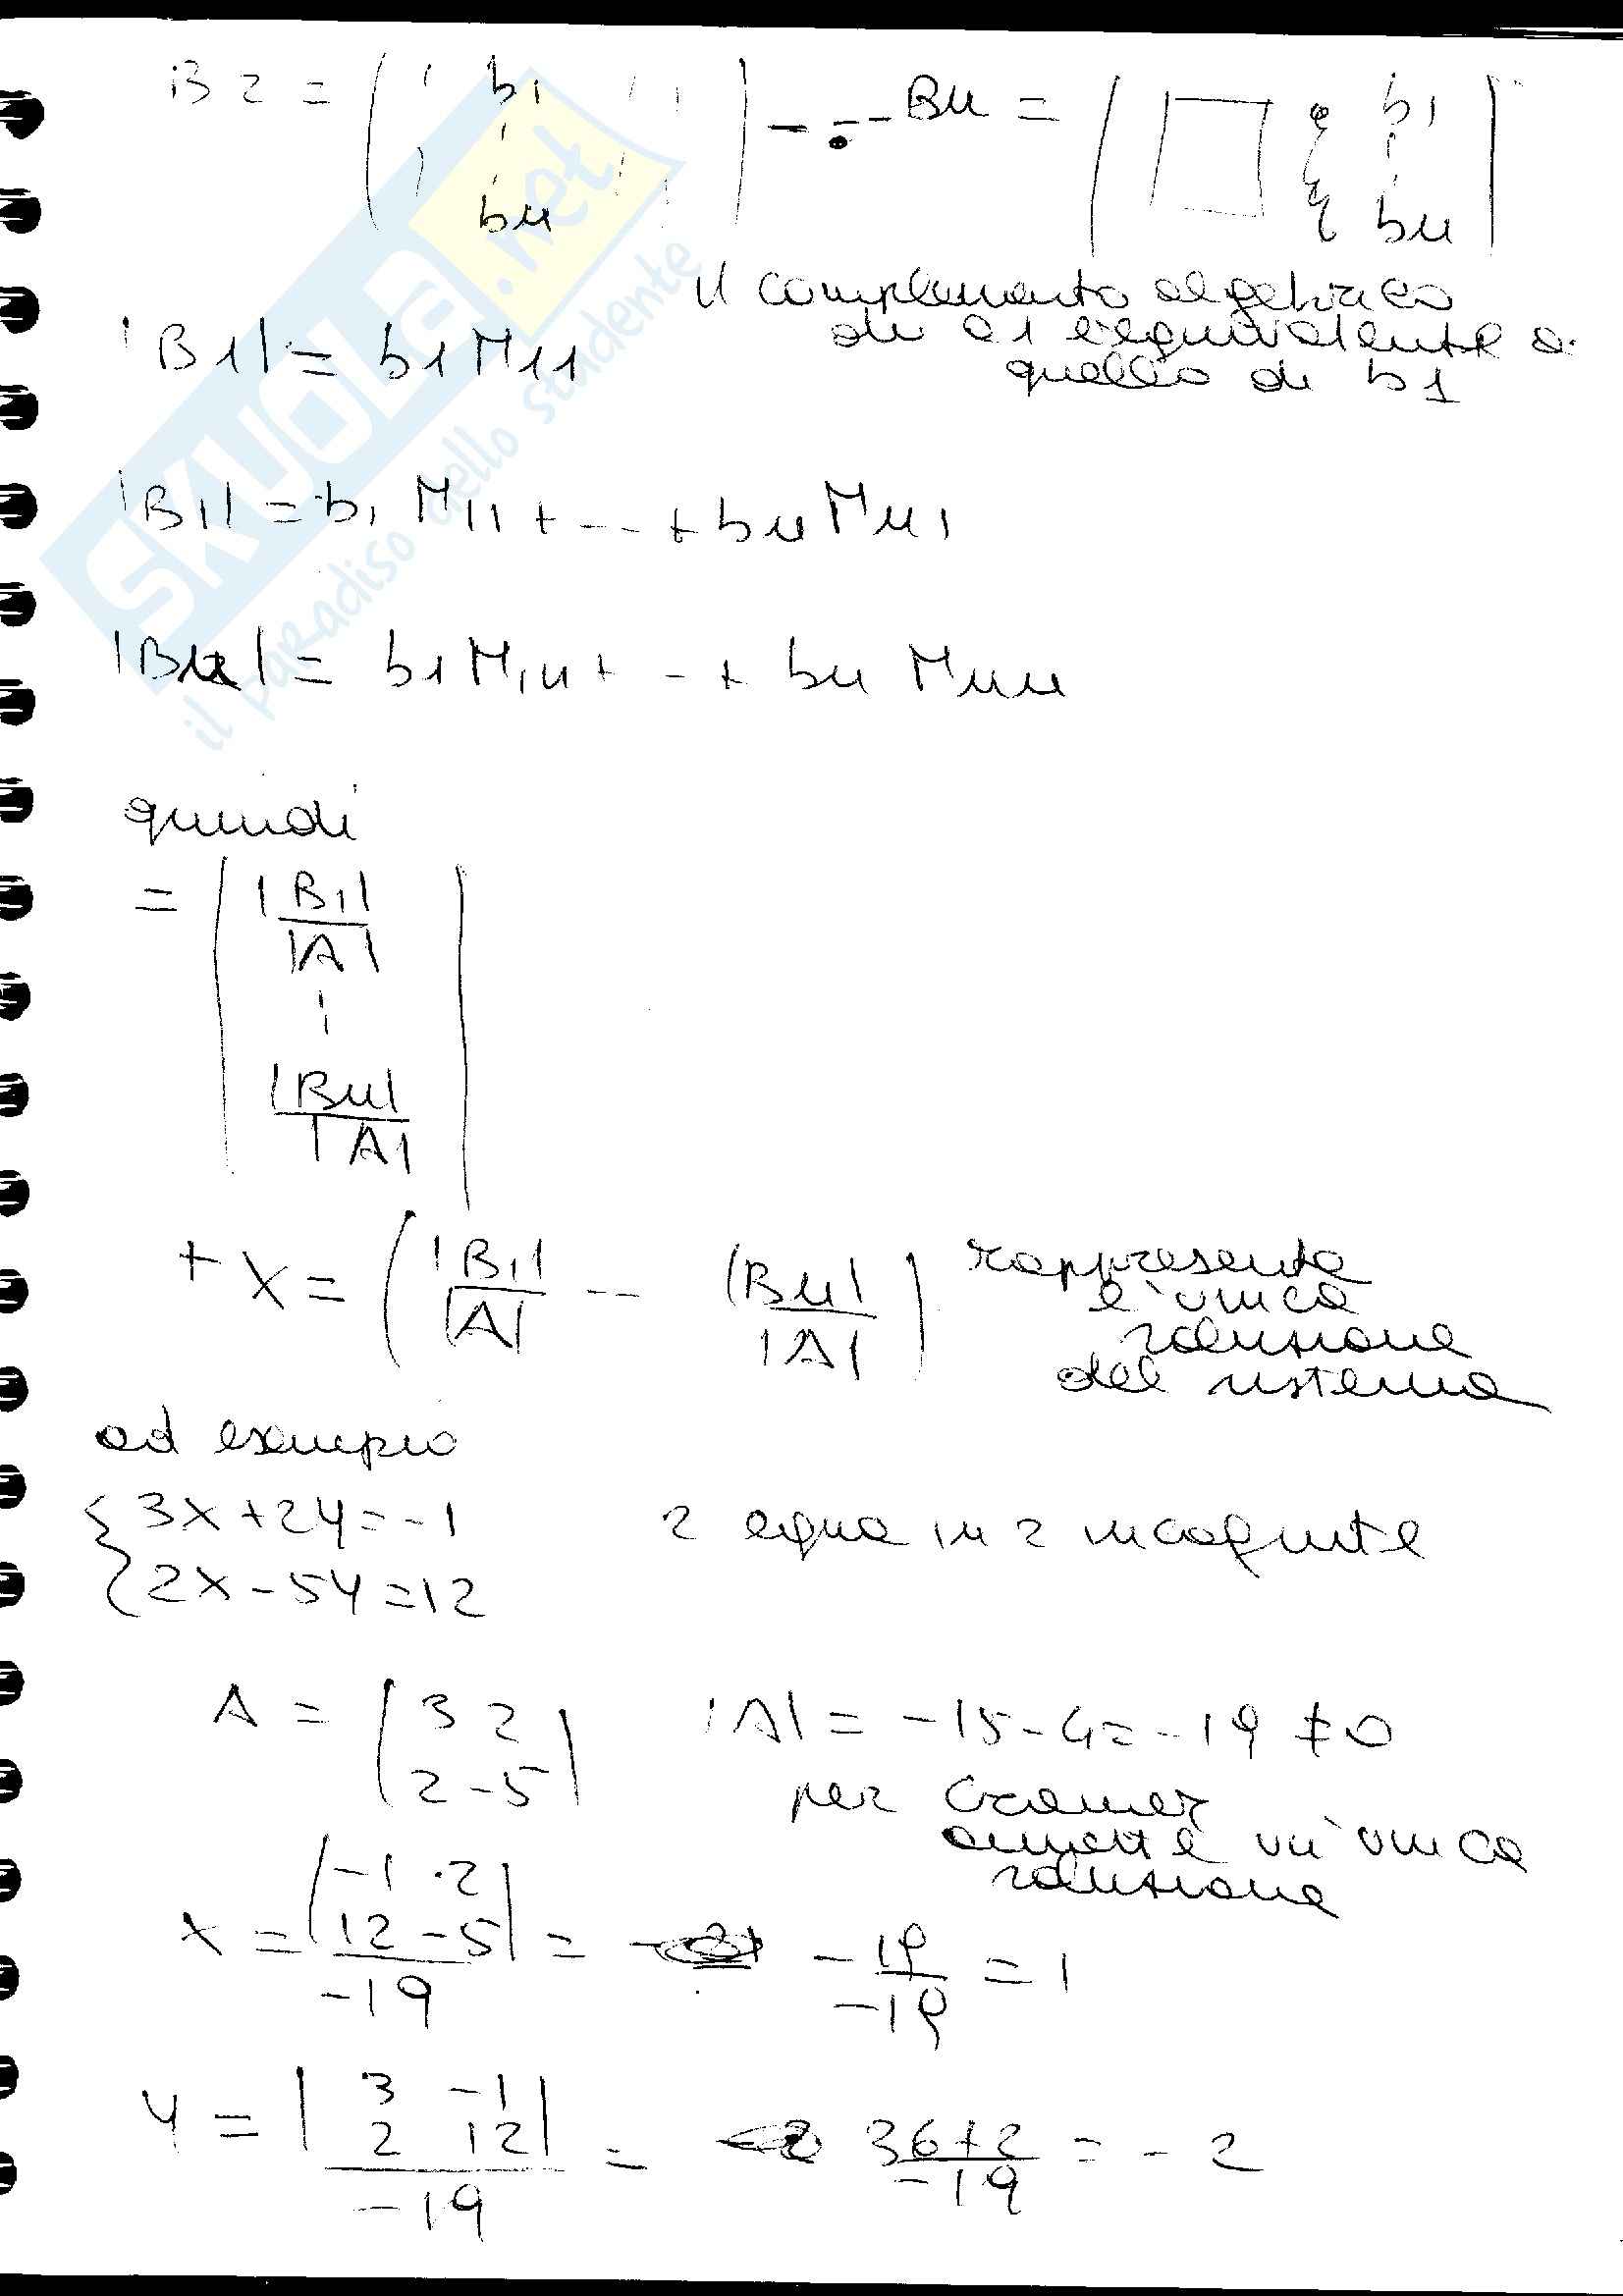 B2 = ( b1 ⋮ bn ) --- Bn = ( b1 ⋮ bn )
il complemento algebrico
di a1 è equivalente a
quello di b1
|B1| = b1 M11
|B1| = b1 M11 + --- + bn Mn1
|Bn| = b1 M1n + -- + bn Mnn
quindi
= ( |B1|/|A| ⋮ |Bn|/|A| )
tX = ( |B1|/|A| -- |Bn|/|A| ) rappresenta
l'unica
soluzione
del sistema
ad esempio
{ 3x+2y=-1 2 equa in 2 incognite
2x-5y=12
A = ( 3 2 |A| = -15-4=-19 ≠0
2 -5 )
per Cramer
ammette un'unica
soluzione
x = | -1 2
12 -5 | / -19 = -19/-19 = 1
y = | 3 -1
2 12 | / -19 = 36+2/-19 = -2
SKUOLA.net
il paradiso dello studente